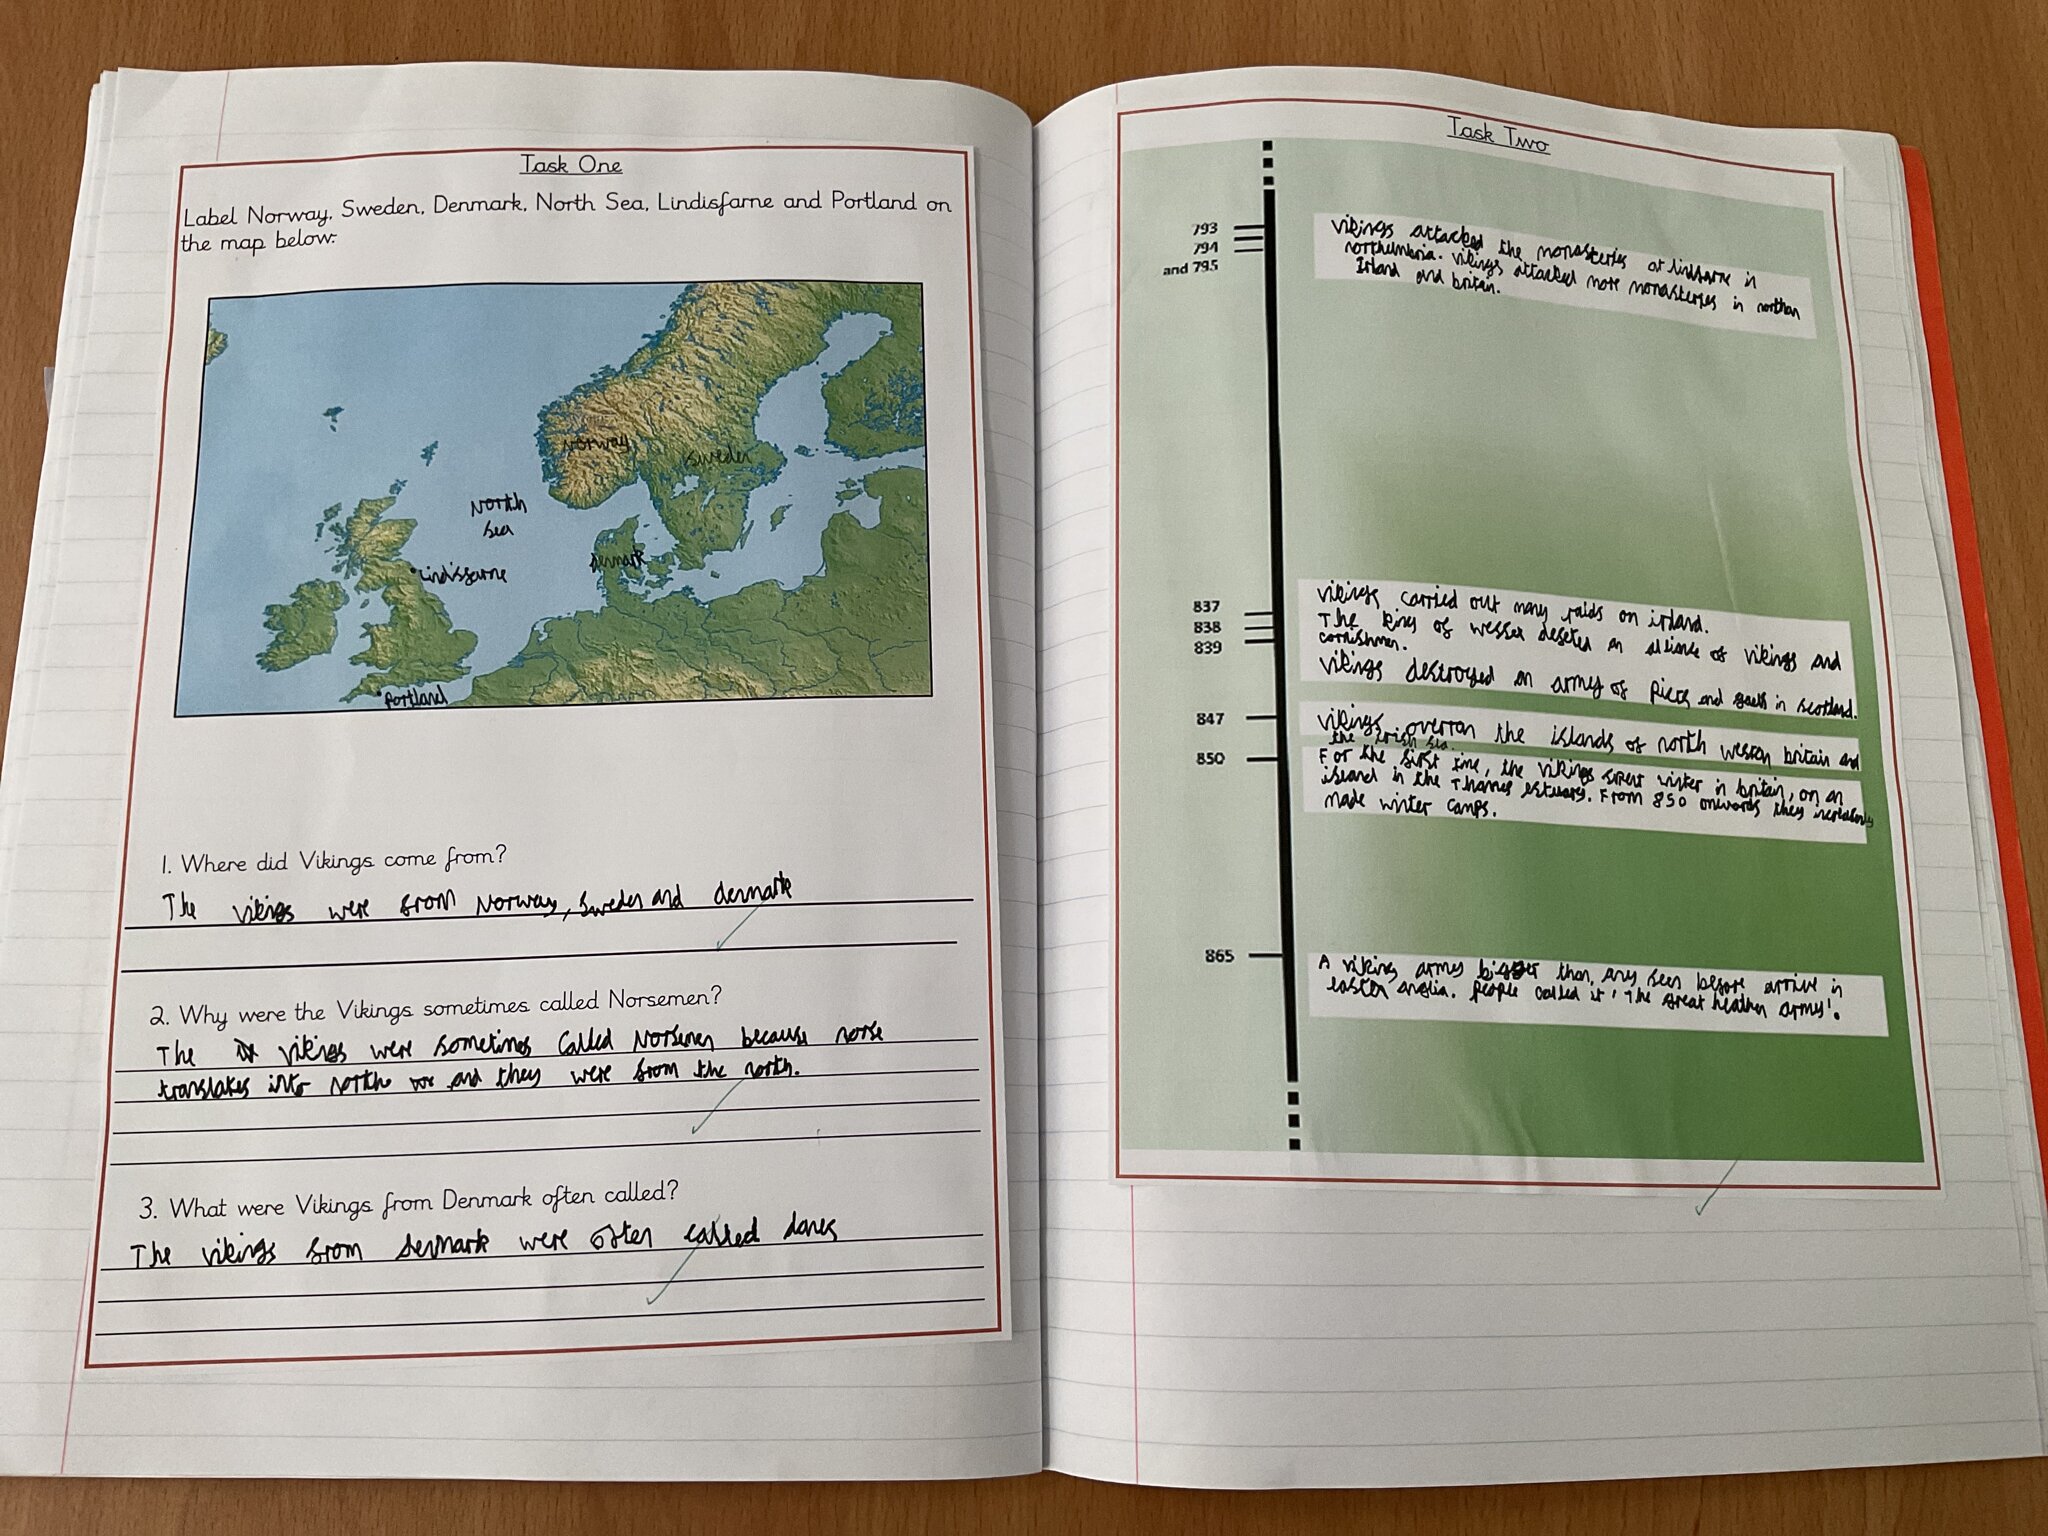 Task One
Label Norway, Sweden, Denmark, North Sea, Lindisfarne and Portland on
the map below:
Norway
Sweden
North
Sea
Denmark
Lindisfarne
Portland
1. Where did Vikings come from?
The vikings were from Norway, Sweden and denmark
2. Why were the Vikings sometimes called Norsemen?
The vikings were sometimes called Norsemen because norse
translates into north and they were from the north.
3. What were Vikings from Denmark often called?
The vikings from denmark were often called danes
Task Two
793
794
and 795
Vikings attacked the monasteries at lindsarne in
northumbria. Vikings attacked more monasteries in northan
Irland and britain.
837
838
839
Vikings carried out many raids on irland.
The king of wessex an alliance of vikings and
cornishmen.
Vikings destroyed an army of Picts and gaels in scotland.
847
Vikings overran the islands of north western britain and
the irish sea.
850
For the first time, the vikings spent winter in britain, on an
island in the Thames estuary. From 850 onwards they
made winter camps.
865
A viking army bigger than any seen before arrive in
easten anglia. People called it 'The great heathen army'.